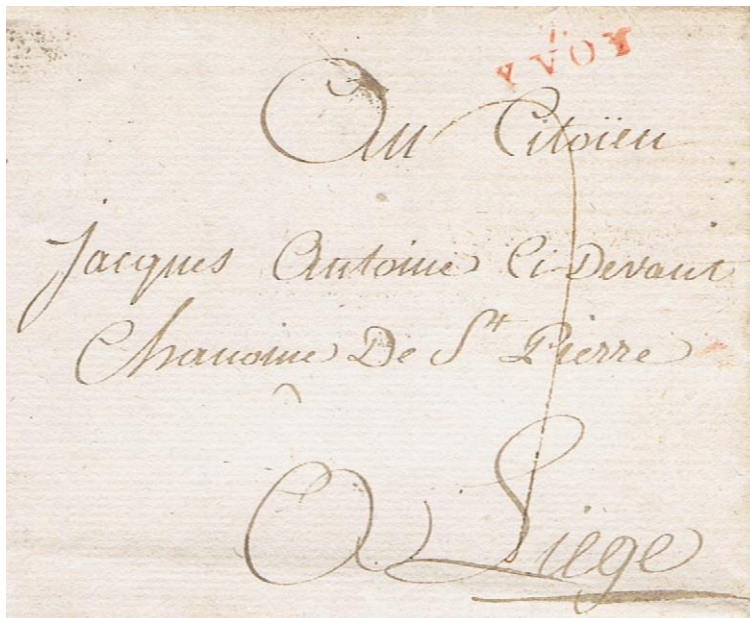 YVOY
Au Citoïen
Jacques Antoine Ci Devant
Chanoine De St Pierre
A Liége